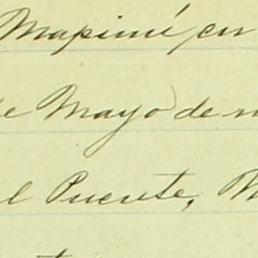 Mapimí, en
de Mayo de
el Puente,